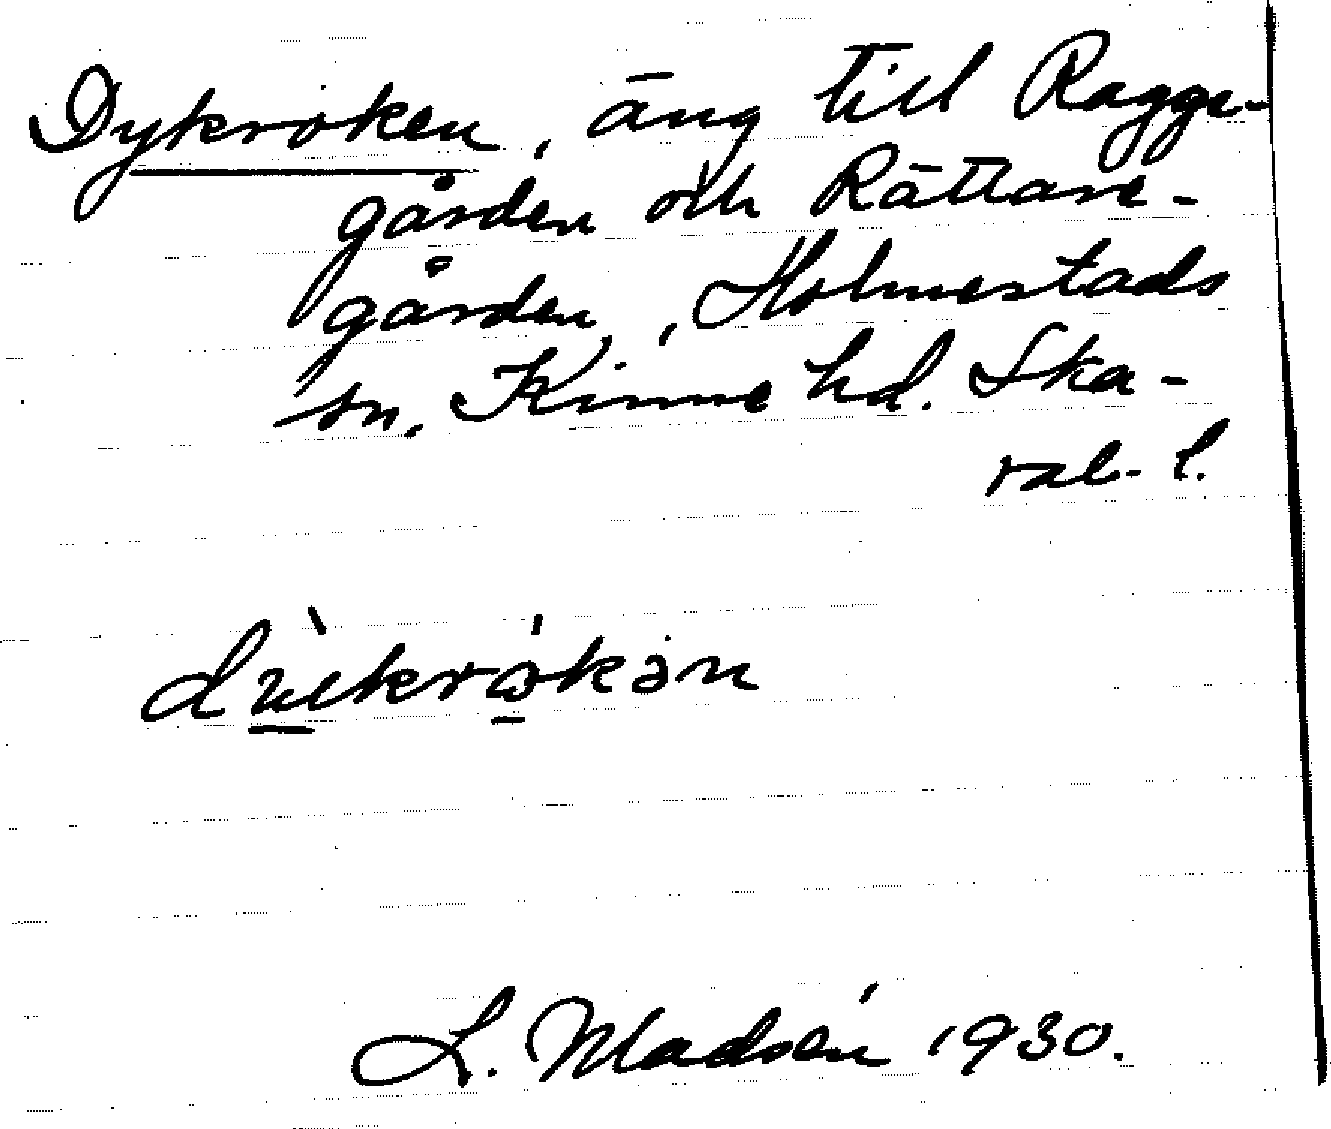 Dykröken, äng till Ragge-
gården och Rättare-
gården, Holmestads
sn. Kinne hd. Ska-
rab. l.
L. Madsén 1930.